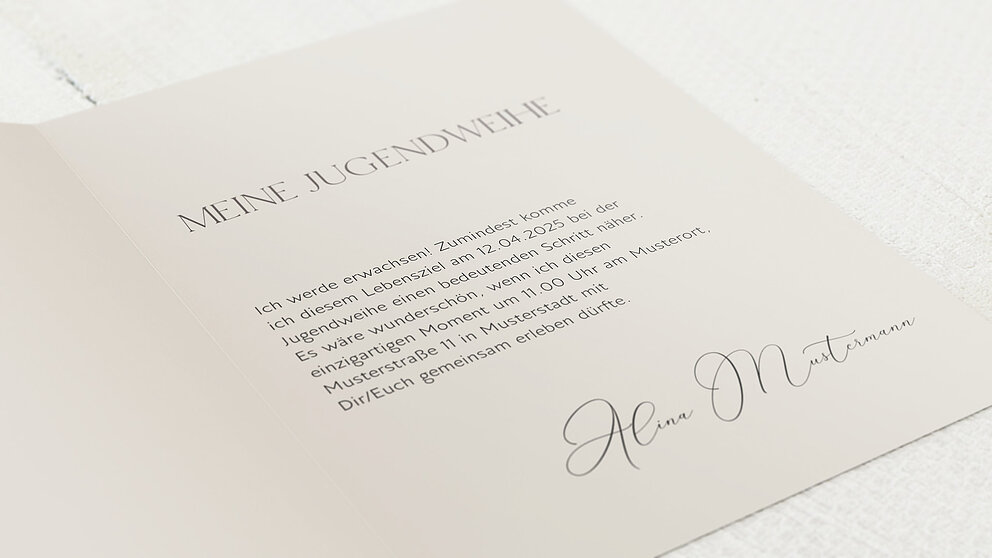 MEINE JUGENDWEIHE
Ich werde erwachsen! Zumindest komme
ich diesem Lebensziel am 12.04.2025 bei der
Jugendweihe einen bedeutenden Schritt näher.
Es wäre wunderschön, wenn ich diesen
einzigartigen Moment um 11.00 Uhr am Musterort,
Musterstraße 11 in Musterstadt mit
Dir/Euch gemeinsam erleben dürfte.
Alina Mustermann